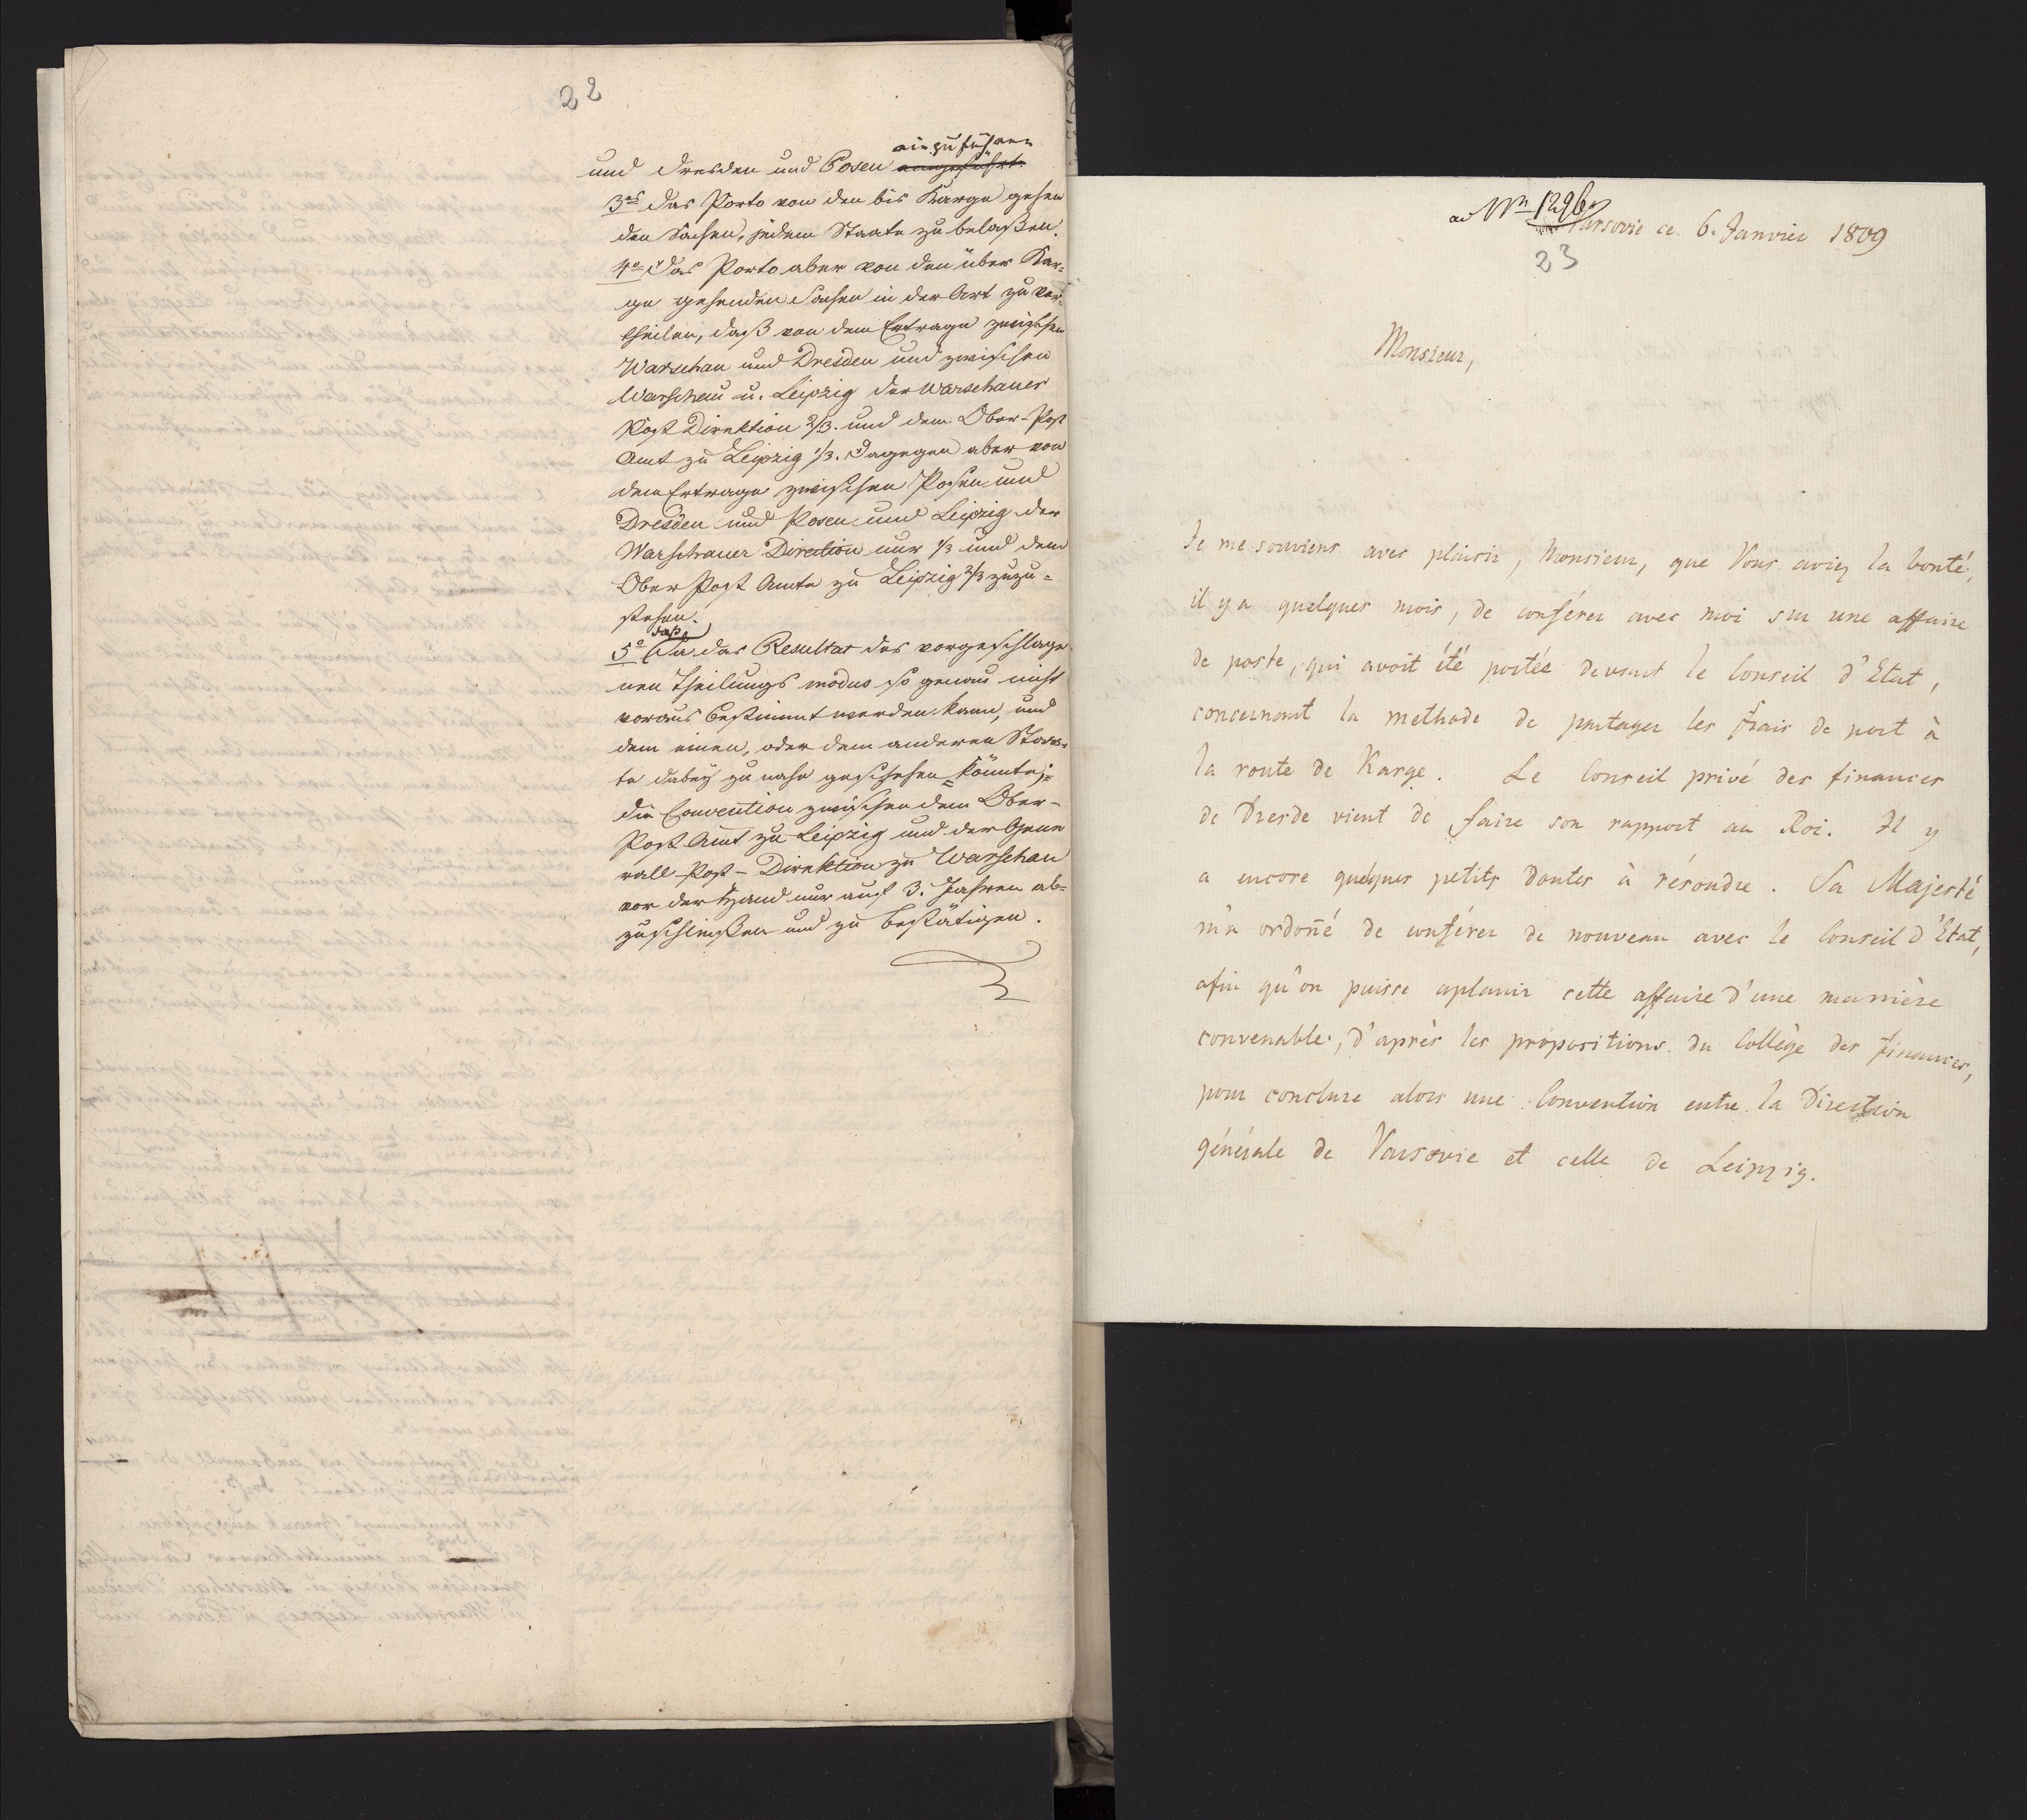 22
einzuführen
und Dresden und Posen eingeführt.
3es das Porto von den bis Karge gehen
den Sachen, jedem Staate zu belaßen.
4o Das Porto aber von den über Kar-
ge gehenden Sachen in der Art zu ver-
theilen, daß von dem Ertrage zwischen
Warschau und Dresden und zwischen
Warschau u. Leipzig der Warschauer
Post Direktion 2/3. und dem Ober-Post
Amt zu Leipzig 1/3. dagegen aber von
dem Ertrage zwischen Posen und
Dresden und Posen und Leipzig der
Warschauer Direction nur 1/3 und dem
Ober Post Amte zu Leipzig 2/3 zuzu-
stehen.
daß
5o Da das Resultat des vorgeschlage
nen Theilungs modus so genau nicht
voraus bestimmt werden kann, und
dem einen, oder dem anderen Staa-
te dabey zu nahe geschehen könnte;
die Convention zwischen dem Ober-
Post Amt zu Leipzig und der Gene
rall-Post-Direktion zu Warschau
vor der Hand nur auf 3. Jahren ab-
zuschließen und zu bestätigen.
ad Nrn 1296
Varsovie ce 6. Janvier 1809
23
Monsieur,
Je me souviens avec plaisir, Monsieur, que Vous aviez la bonté,
il y a quelques mois, de conférer avec moi sur une affaire
de poste, qui avoit été portée devant le Conseil d'Etat,
concernant la methode de partager les frais de port à
la route de Karge. Le Conseil privé des finances
de Dresde vient de faire son rapport au Roi. Il y
a encore quelques petits doutes à résoudre. Sa Majesté
m'a ordoñé de conférer de nouveau avec le Conseil d'Etat,
afin qu'on puisse aplanir cette affaire d'une manière
convenable, d'après les propositions du Collège des finances,
pour conclure alors une Convention entre la Direction
générale de Varsovie et celle de Leipzig.